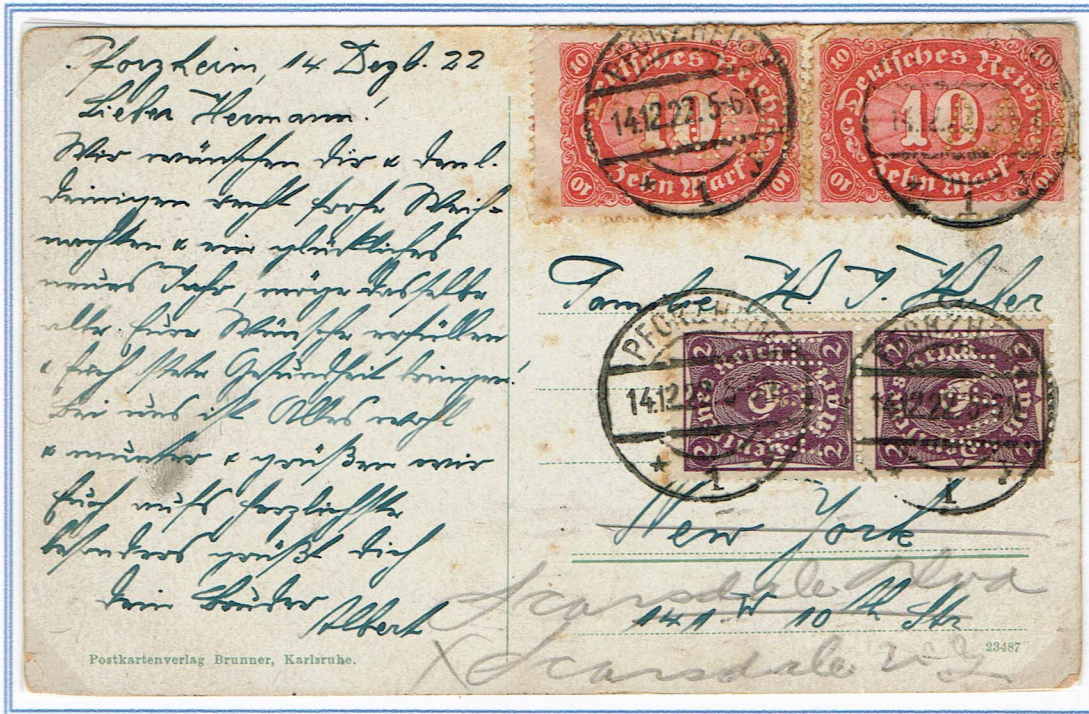 Pforzheim, 14 Dezb. 22
Lieber Hermann!
Wir wünschen dir & den l.
deinigen recht frohe Weih-
nachten & ein glückliches
neues Jahr, möge dasselbe
alle Eure Wünsche erfüllen
& Euch stets Gesundheit bringen!
Bei uns ist Alles wohl
& munter & grüßen wir
Euch aufs herzlichste
besonders grüßt dich
dein Bruder
Albert
Postkartenverlag Brunner, Karlsruhe.
10 Deutsches Reich 10
10
Zehn Mark
10 10
PFORZHEIM
14.12.22. 5-6
* 1
10 Deutsches Reich 10
10
Zehn Mark
10 10
14.12.22. 5-6
* 1
Huber
PFORZHEIM
14.12.22
* 1
2 2
2 Mark 2
PFORZHEIM
14.12.22. 5-6
* 1
2 2
2 2
New York
141 W 10th Str
Scarsdale
Scarsdale N Y
23487